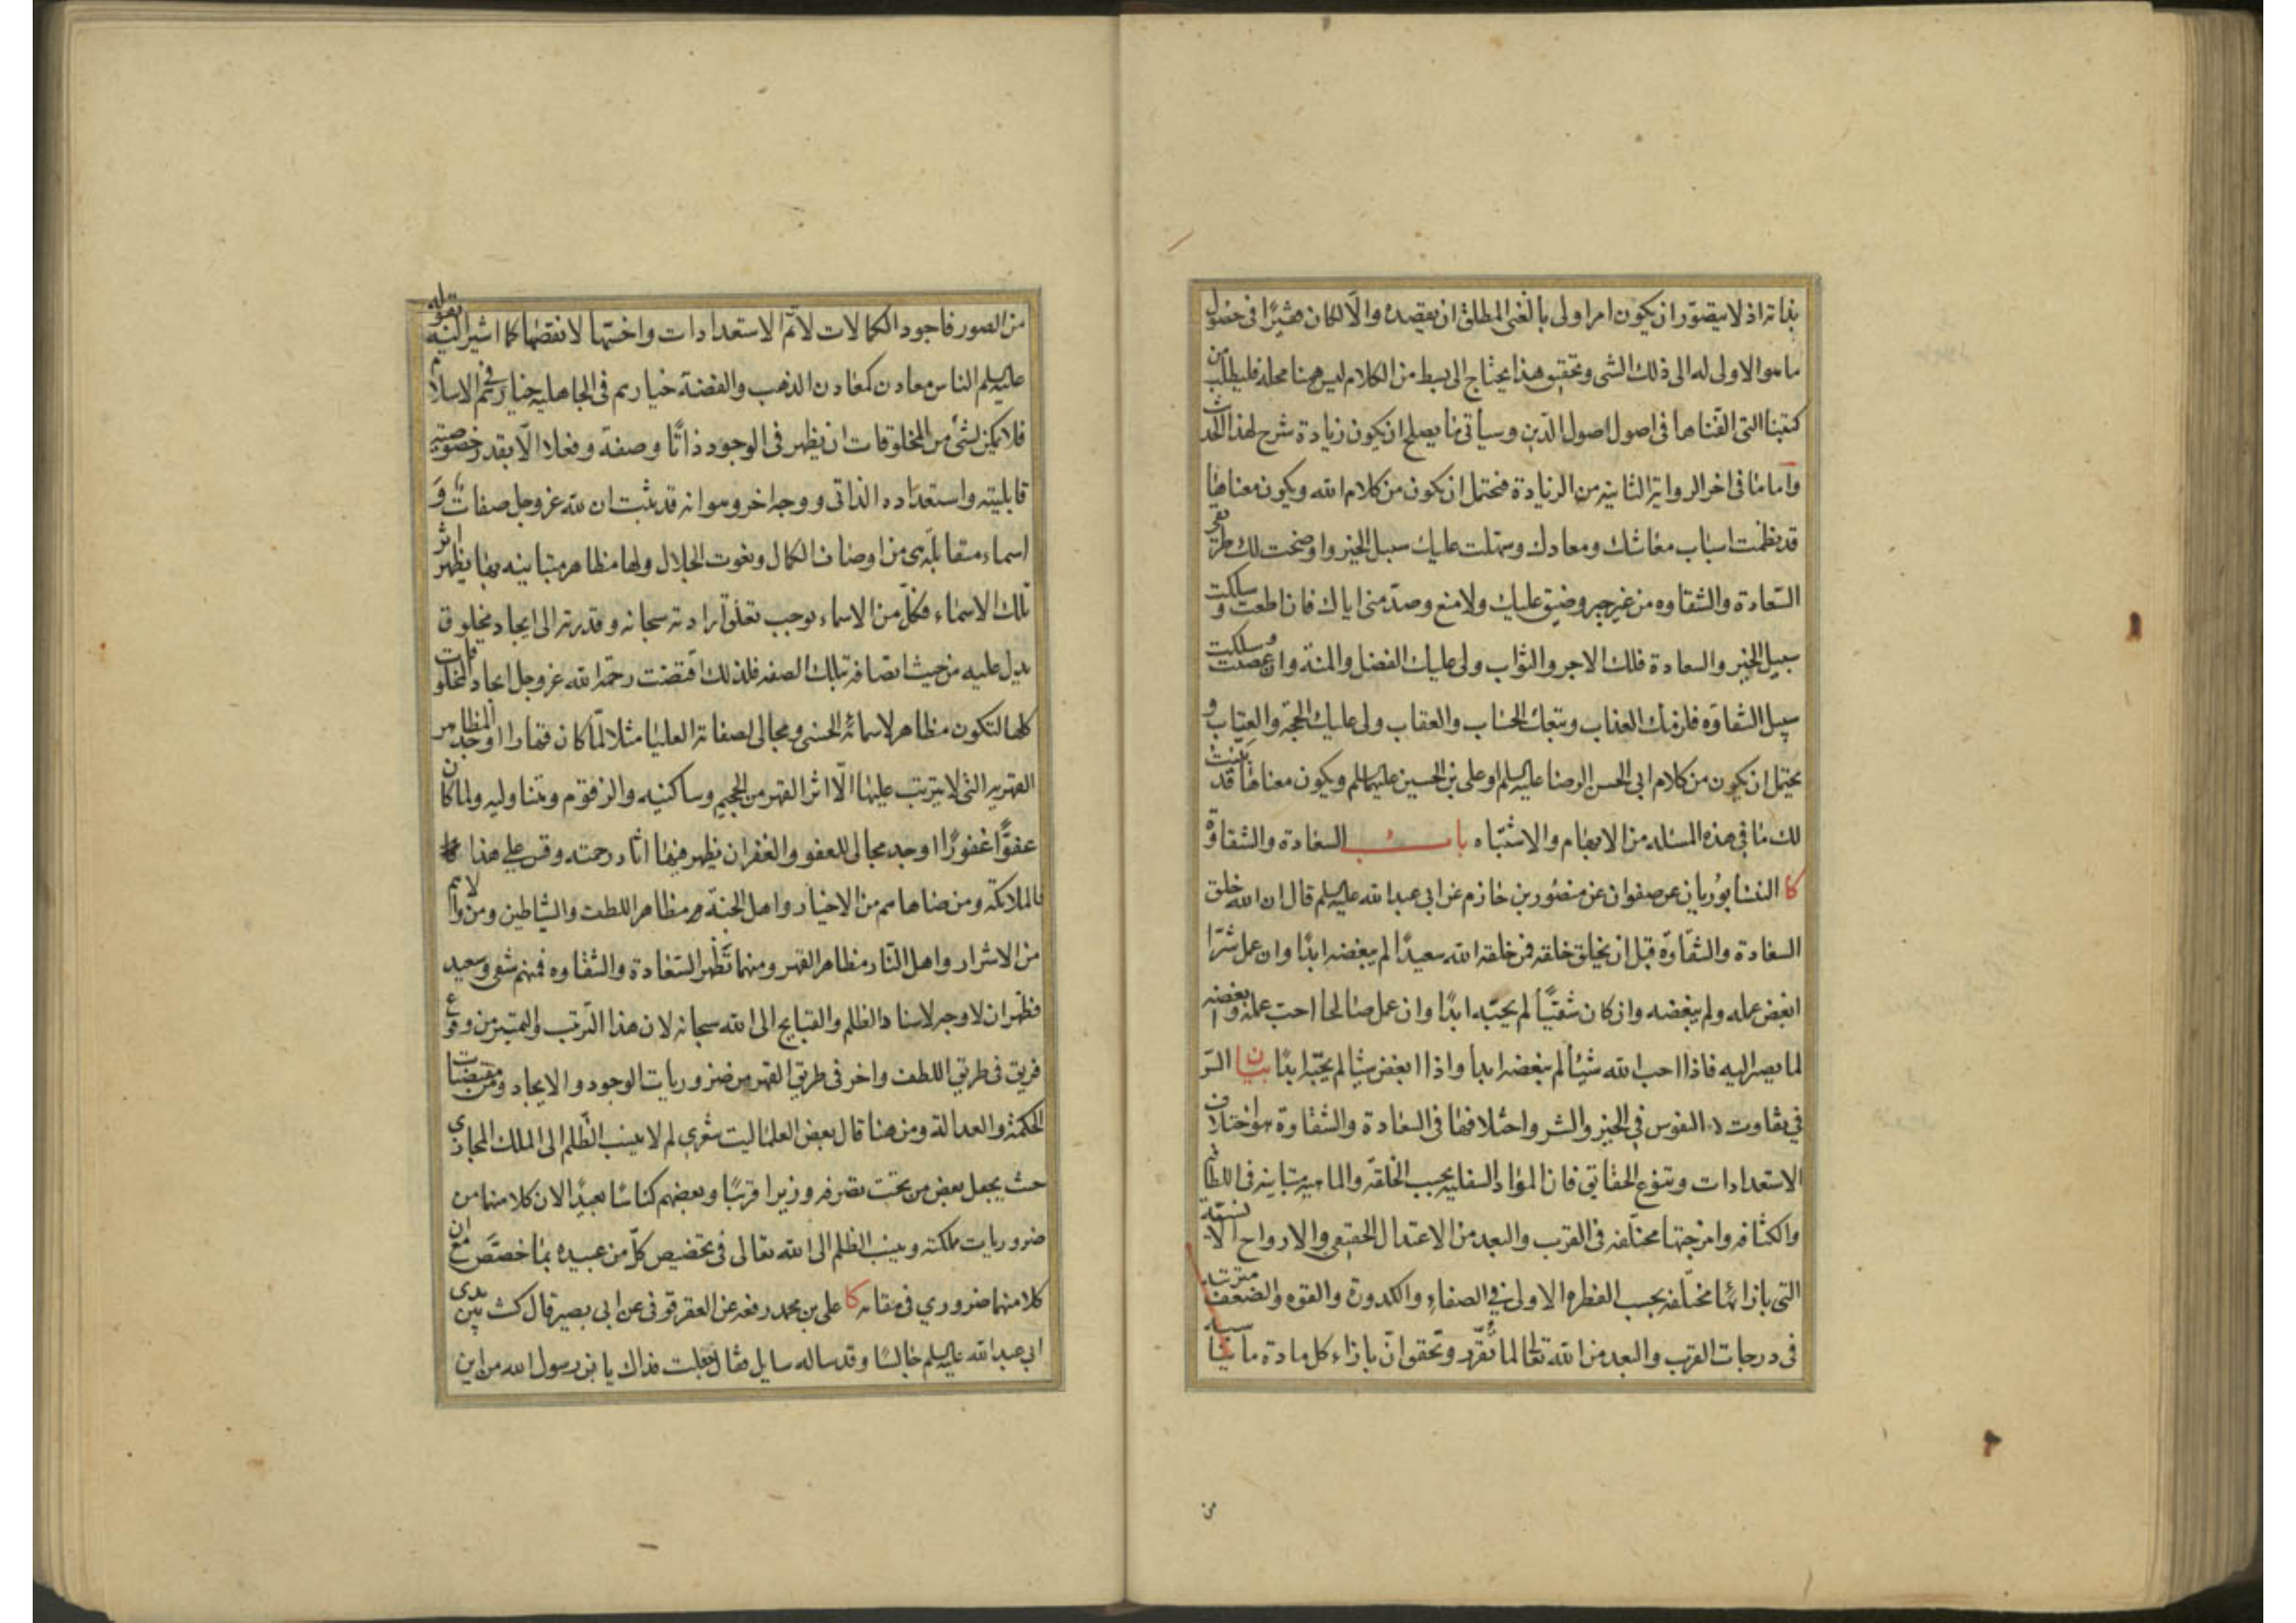 بذاته اذ لا يتصور ان يكون امرا ولى بالغنى المطلق ان يقصده والا لكان مفتقرا فى حصول
ما هو الاولى له الى ذلك الشى وتحقيق هذا يحتاج الى بسط من الكلام ليس هنا محله فليطلب من
كتبنا التى الفناها فى اصول اصول الدين وسيأتى ما يصلح ان يكون زيادة شرح لهذا الحديث
واما ما فى اخر الرواية الثانية من الزيادة فيحتمل ان يكون من كلام الله ويكون معناها
قد نظمت اسباب معاشك ومعادك وسهلت عليك سبيل الخير واوضحت لك طريقى
السعادة والشقاوه من غير جبر وضيق عليك ولا منع وصد منى اياك فان اطعت وسلكت
سبيل الخير والسعادة فلك الاجر والثواب ولى عليك الفضل والمنة وان عصيت وسلكت
سبيل الشقاوه فلزمك العذاب وتبعك الحساب والعقاب ولى عليك الحجة والعتاب و
يحتمل ان يكون من كلام ابى الحسن الرضا عليه السلم او على بن الحسين عليهما السلم ويكون معناها قد بينت
لك ما فى هذه المسئله من الابهام والاشتباه باب السعادة والشقاوة
كا النيشابوريان عن صفوان عن منصور بن حازم عن ابى عبد الله عليه السلم قال ان الله خلق
السعادة والشقاوة قبل ان يخلق خلقه فمن خلقه الله سعيدا لم يبغضه ابدا وان عمل شرا
ابغض عمله ولم يبغضه وان كان شقيا لم يحبه ابدا وان عمل صالحا احب عمله وابغضه
لما يصير اليه فاذا احب الله شيئا لم يبغضه ابدا واذا ابغض شيئا لم يحبه ابدا بيان السر
فى تفاوت النفوس فى الخير والشر واختلافها فى السعادة والشقاوة هو اختلاف
الاستعدادات وتنوع الحقايق فان المواد السفليه بحسب الخلقة والماهيه متباينه فى اللطافة
والكثافه وامزجتها مختلفه فى القرب والبعد من الاعتدال الحقيقى والارواح الانسية
التى بازائها مختلفه بحسب الفطره الاولى فى الصفاء والكدورة والقوه والضعف مترتبه
فى درجات القرب والبعد من الله تعالى لما تقرر وتحقق ان بازاء كل مادة ما يناسبه
من
من الصور فاجود الكمالات لاتم الاستعدادات واخسها لانقصها كما اشير اليه بقوله
عليه السلم الناس معادن كمعادن الذهب والفضة خيارهم فى الجاهلية خيارهم فى الاسلام
فلا يمكن لشئ من المخلوقات ان يظهر فى الوجود ذاتا وصفة وفعلا الا بقدر خصوصية
قابليته واستعداده الذاتى ووجه اخر وهو انه قد ثبت ان لله عز وجل صفات و
اسماء متقابلة هى من اوصاف الكمال ونعوت الجلال ولها مظاهر متباينه بها يظهر اثر
تلك الاسماء فكل من الاسماء يوجب تعلق ارادته سبحانه وقدرته الى ايجاد مخلوق
يدل عليه من حيث اتصافه بتلك الصفه فلذلك اقتضت رحمة الله عز وجل ايجاد المخلوقات
كلها لتكون مظاهر لاسمائه الحسنى ومجالى لصفاته العليا مثلا لما كان قهارا اوجد المظاهر
القهريه التى لا يترتب عليها الا اثر القهر من الجحيم وساكنيه والزقوم ومتناوليه ولما كان
عفوا غفورا اوجد مجالى للعفو والغفران يظهر فيها اثار رحمته وقس على هذا
فالملائكة ومن ضاهاهم من الاخيار واهل الجنة مظاهر اللطف والشياطين ومن والاهم
من الاشرار واهل النار مظاهر القهر ومنهما تظهر السعادة والشقاوه فمنهم شقى وسعيد
فظهر ان لا وجه لاسناد الظلم والقبايح الى الله سبحانه لان هذا الترتب والتميز من وقوع
فريق فى طريق اللطف واخر فى طريق القهر من ضروريات الوجود والايجاد ومن مقتضيات
الحكمة والعدالة ومن هنا قال بعض العلما ليت شعرى لم لا ينسب الظلم الى الملك المجازى
حيث يجعل بعض من تحت تصرفه وزيرا قريبا وبعضهم كناسا بعيدا لان كلا منهما من
ضروريات مملكته وينسب الظلم الى الله تعالى فى تخصيص كل من عبيده بما خصص مع ان
كلا منهما ضرورى فى مقامه كا على بن محمد رفعه عن العقرقوفى عن ابى بصير قال كنت بين يدى
ابى عبد الله عليه السلم جالسا وقد ساله سايل فقال جعلت فداك يا بن رسول الله من اين